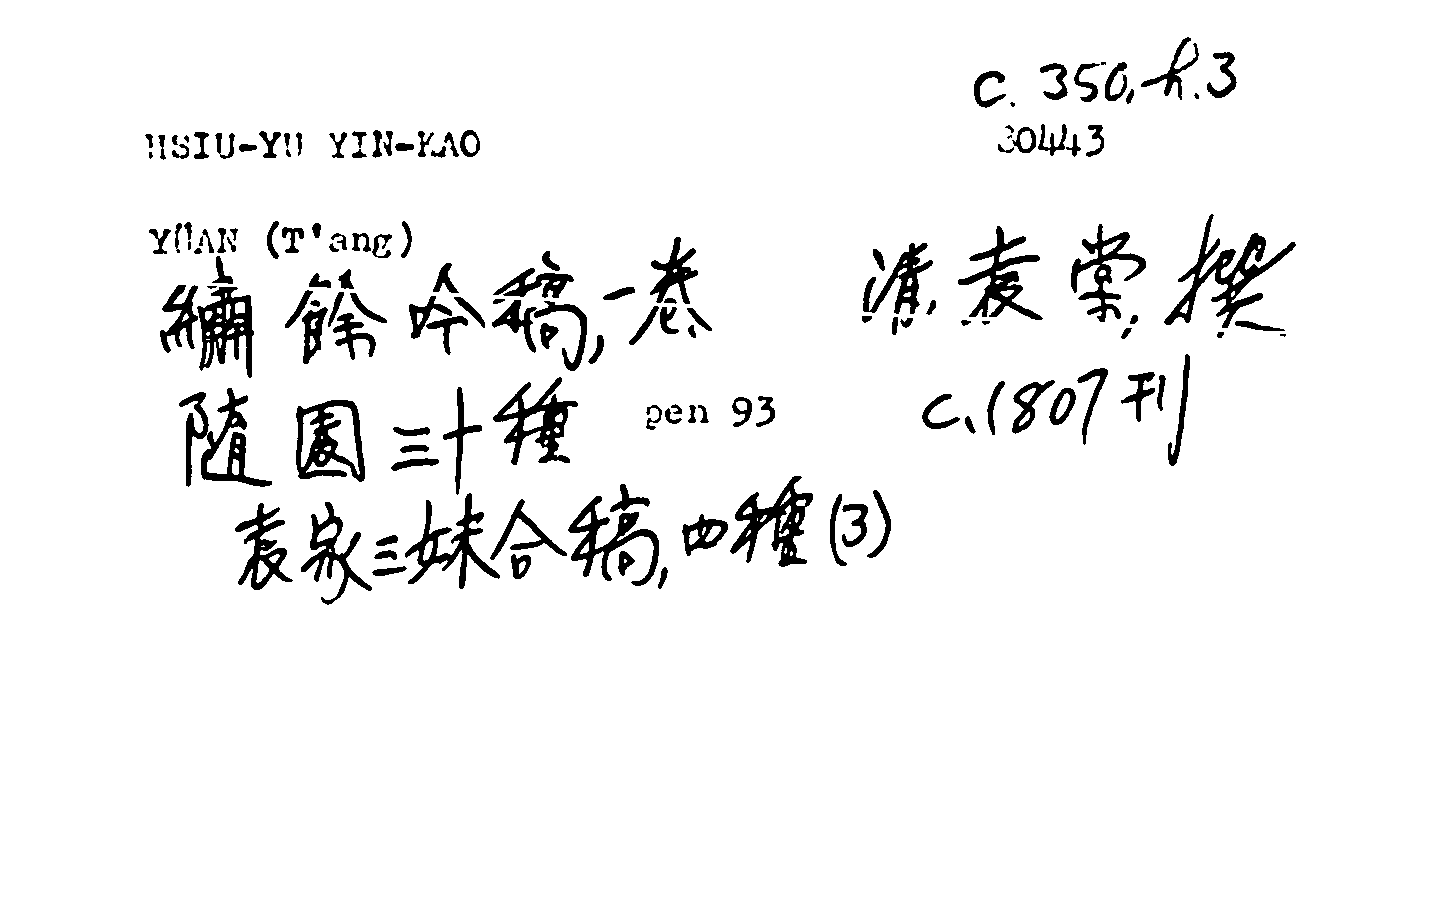 C. 350, h. 3
HSIU-YU YIN-KAO
30443
YÜAN (T'ang)
繡餘吟稿, 一卷 清, 袁棠, 撰
隨園三十種 pen 93 c. 1807 刊
袁家三妹合稿, 四種 (3)